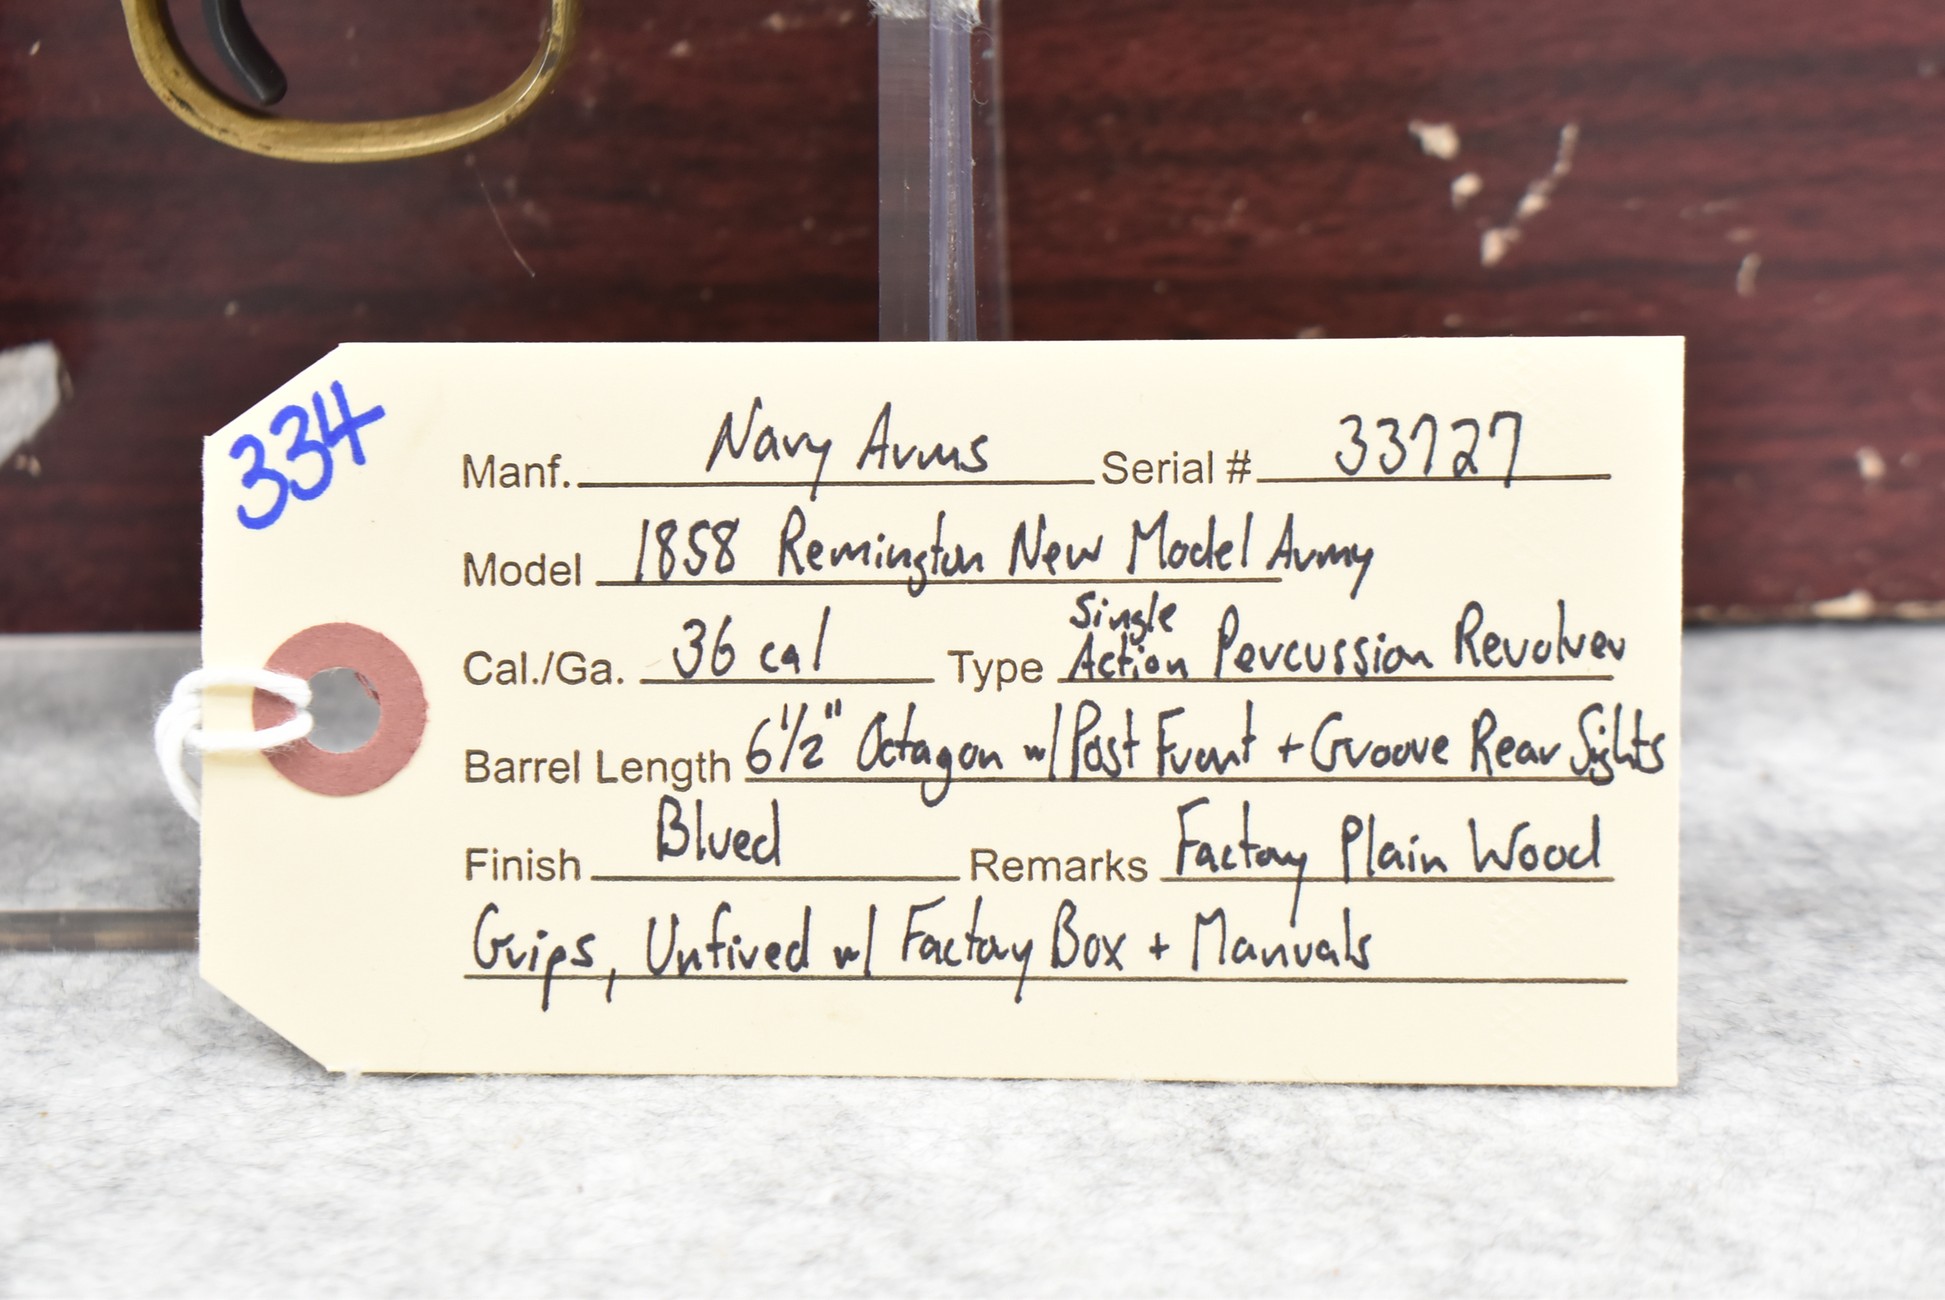 334
Manf. Navy Arms Serial # 33727
Model 1858 Remington New Model Army
Cal./Ga. 36 cal Type Single Action Percussion Revolver
Barrel Length 6 1/2" Octagon w/ Post Front + Groove Rear Sights
Finish Blued Remarks Factory Plain Wood
Grips, Unfired w/ Factory Box + Manuals